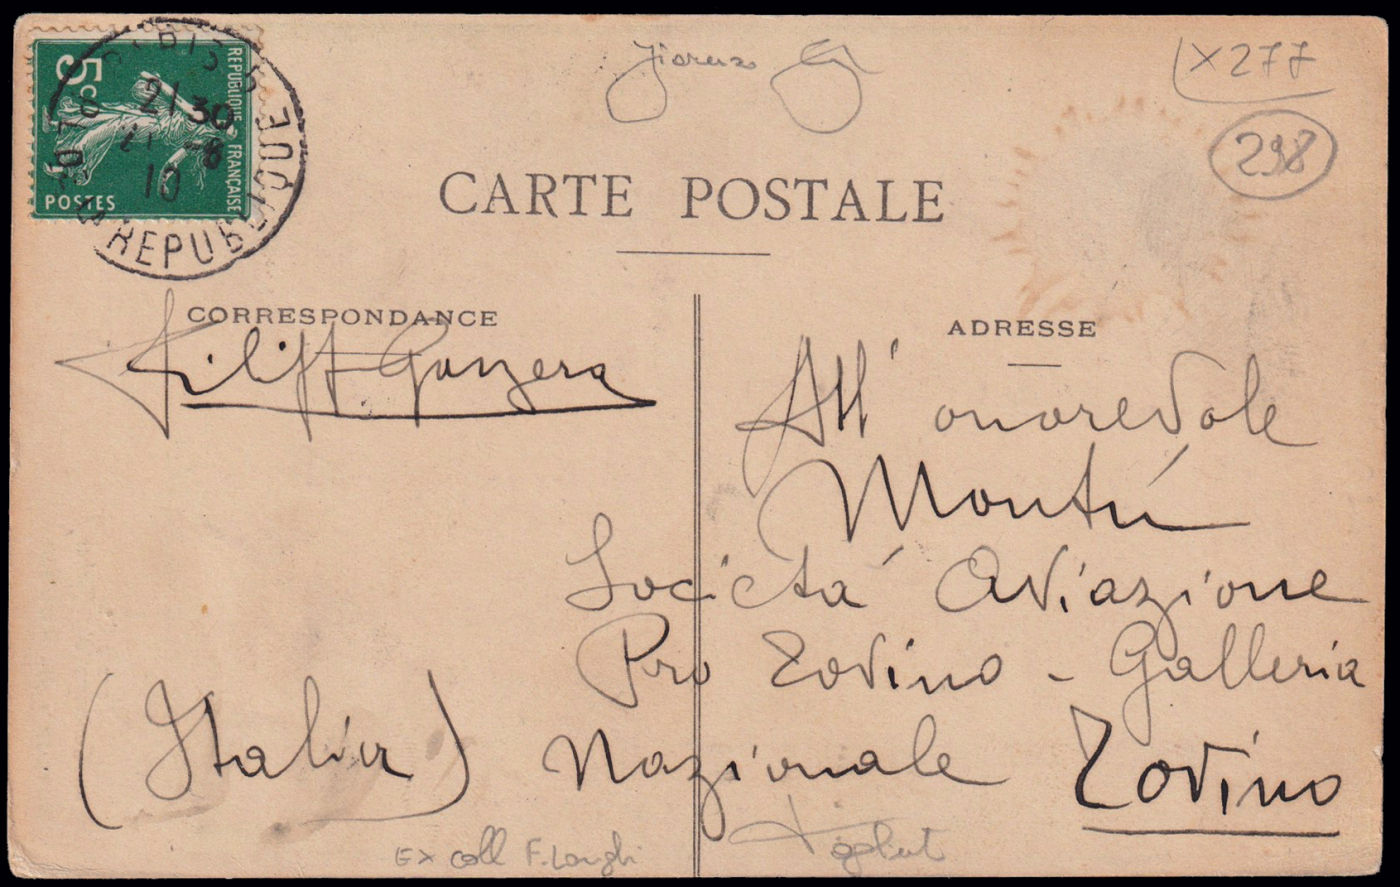 5c
REPUBLIQUE FRANÇAISE
POSTES
21 30
21 -8
10
REPUBLIQUE
X277
298
CARTE POSTALE
CORRESPONDANCE
ADRESSE
All' onorevole
Montú
Societá Aviazione
Pro Torino - Galleria
Nazionale Torino
(Italia)
Ex coll F. Longhi